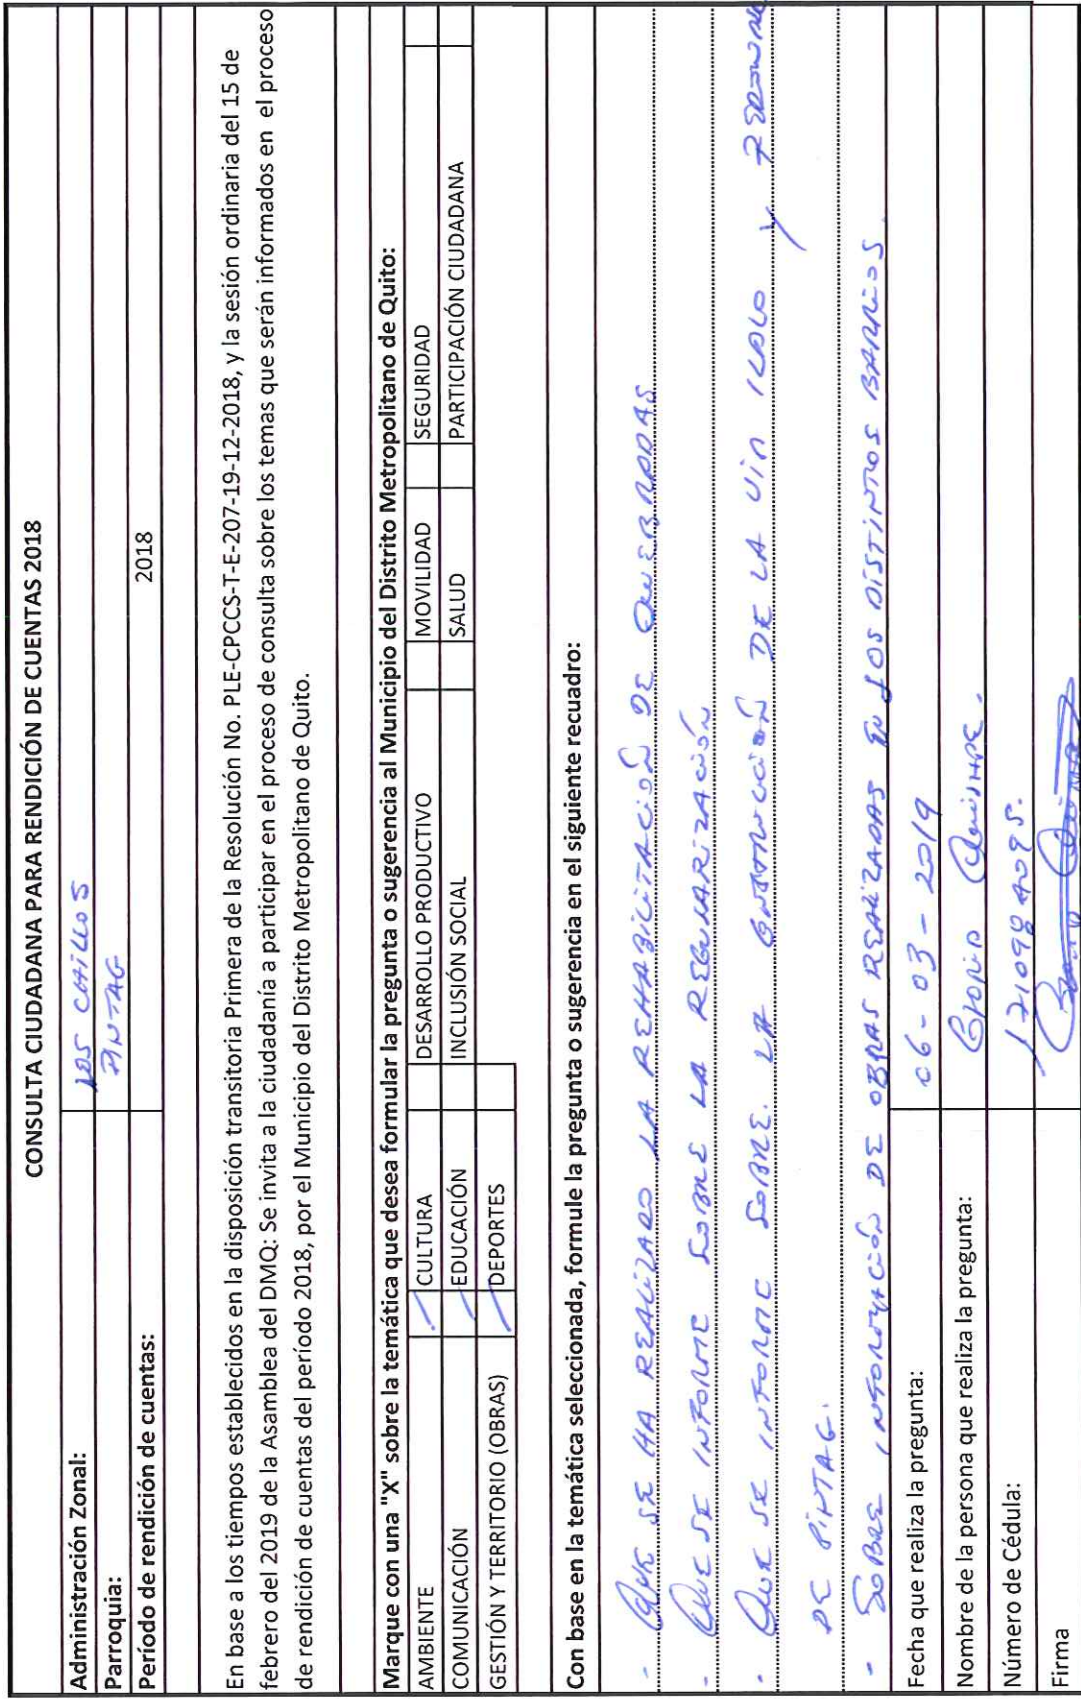 CONSULTA CIUDADANA PARA RENDICIÓN DE CUENTAS 2018
Administración Zonal: LOS CHILLOS
Parroquia: PINTAG
Período de rendición de cuentas: 2018
En base a los tiempos establecidos en la disposición transitoria Primera de la Resolución No. PLE-CPCCS-T-E-207-19-12-2018, y la sesión ordinaria del 15 de
febrero del 2019 de la Asamblea del DMQ: Se invita a la ciudadanía a participar en el proceso de consulta sobre los temas que serán informados en el proceso
de rendición de cuentas del período 2018, por el Municipio del Distrito Metropolitano de Quito.
Marque con una "X" sobre la temática que desea formular la pregunta o sugerencia al Municipio del Distrito Metropolitano de Quito:
AMBIENTE / CULTURA DESARROLLO PRODUCTIVO MOVILIDAD SEGURIDAD
COMUNICACIÓN / EDUCACIÓN INCLUSIÓN SOCIAL SALUD PARTICIPACIÓN CIUDADANA
GESTIÓN Y TERRITORIO (OBRAS) / DEPORTES
Con base en la temática seleccionada, formule la pregunta o sugerencia en el siguiente recuadro:
- QUE SE HA REALIZADO LA REHABILITACIÓN DE QUEBRADAS
- QUE SE INFORME SOBRE LA REGULARIZACIÓN
- QUE SE INFORME SOBRE. LA CONSTRUCCIÓN DE LA VIA Y
DE PINTAG.
- SOBRE INFORMACIÓN DE OBRAS REALIZADAS EN LOS DISTINTOS BARRIOS.
Fecha que realiza la pregunta: 06-03-2019
Nombre de la persona que realiza la pregunta:
Número de Cédula:
Firma